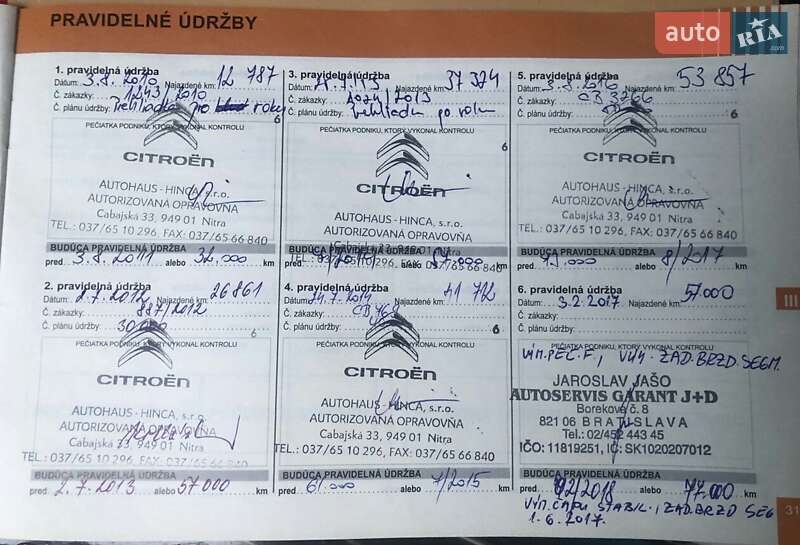 PRAVIDELNÉ ÚDRŽBY
auto RIA .com
1. pravidelná údržba
Dátum: 3.8.2010 Najazdené km: 12 787
Č. zákazky: 1243/2010
Č. plánu údržby: roku
6
PEČIATKA PODNIKU, KTORÝ VYKONAL KONTROLU
CITROËN
AUTOHAUS - HINCA, s.r.o.
AUTORIZOVANÁ OPRAVOVŇA
Cabajská 33, 949 01 Nitra
TEL.: 037/65 10 296, FAX: 037/65 66 840
BUDÚCA PRAVIDELNÁ ÚDRŽBA
pred 3.8.2011 alebo 32.000 km
2. pravidelná údržba
Dátum: 2.7.2012 Najazdené km: 26861
Č. zákazky: 887/2012
Č. plánu údržby: 30.000
6
PEČIATKA PODNIKU, KTORÝ VYKONAL KONTROLU
CITROËN
AUTOHAUS - HINCA, s.r.o.
AUTORIZOVANÁ OPRAVOVŇA
Cabajská 33, 949 01 Nitra
TEL.: 037/65 10 296, FAX: 037/65 66 840
BUDÚCA PRAVIDELNÁ ÚDRŽBA
pred 2.7.2013 alebo 57000 km
3. pravidelná údržba
Dátum: Najazdené km: 37 324
Č. zákazky: /2013
Č. plánu údržby: po roku
PEČIATKA PODNIKU, KTORÝ VYKONAL KONTROLU
6
CITROËN
AUTOHAUS - HINCA, s.r.o.
AUTORIZOVANÁ OPRAVOVŇA
Cabajská 33, 949 01 Nitra
BUDÚCA PRAVIDELNÁ ÚDRŽBA
TEL.: 037/65 10 296, FAX: 037/65 66 840
pred alebo km
4. pravidelná údržba
Dátum: 24.7.2014 Najazdené km: 41 722
Č. zákazky:
Č. plánu údržby:
6
PEČIATKA PODNIKU, KTORÝ VYKONAL KONTROLU
CITROËN
AUTOHAUS - HINCA, s.r.o.
AUTORIZOVANÁ OPRAVOVŇA
Cabajská 33, 949 01 Nitra
TEL.: 037/65 10 296, FAX: 037/65 66 840
BUDÚCA PRAVIDELNÁ ÚDRŽBA
pred 61.000 alebo 7/2015 km
5. pravidelná údržba
Dátum: 3.8.2016 Najazdené km: 53 857
Č. zákazky:
Č. plánu údržby:
PEČIATKA PODNIKU, KTORÝ VYKONAL KONTROLU
6
CITROËN
AUTOHAUS - HINCA, s.r.o.
AUTORIZOVANÁ OPRAVOVŇA
Cabajská 33, 949 01 Nitra
TEL.: 037/65 10 296, FAX: 037/65 66 840
BUDÚCA PRAVIDELNÁ ÚDRŽBA
pred alebo 8/2017 km
6. pravidelná údržba
Dátum: 3.2.2017 Najazdené km: 57.000
Č. zákazky:
Č. plánu údržby:
6
PEČIATKA PODNIKU, KTORÝ VYKONAL KONTROLU
VÝM. PEĽ. F., VÝM. ZAD. BRZD. SEGM.
JAROSLAV JAŠO
AUTOSERVIS GARANT J+D
Borekova č. 8
821 06 BRATISLAVA
Tel.: 02/452 443 45
IČO: 11819251, IČ: SK1020207012
BUDÚCA PRAVIDELNÁ ÚDRŽBA
pred 02/2018 alebo 77.000 km
VÝM. ČAPU STABIL., ZAD. BRZD SEG
1.6.2017.
III
31